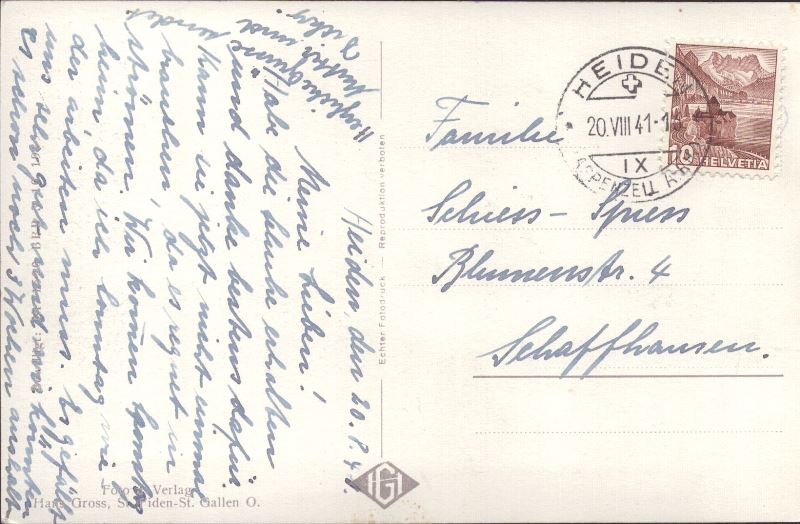 Heiden, den 20. 8. 41.
Meine Lieben!
Habe die Schuhe erhalten
und danke bestens dafür
Kann sie jetzt nicht einmal
brauchen, da es regnet in
Strömen. Wir können Sonntag
heim, da ich Sonntag
der arbeiten muss. Es gefällt
uns sehr gut und wir könnten
es schon noch 3 Wochen aushalten
sendet
Herzliche Grüsse
HEIDEN
20.VIII 41-1
IX
APPENZELL A.RH.
10 HELVETIA
Familie
Schiess - Spiess
Blumenstr. 4
Schaffhausen.
Echter Fotodruck — Reproduktion verboten
HGI
Foto Verlag
Hans Gross, St. Fiden-St. Gallen O.